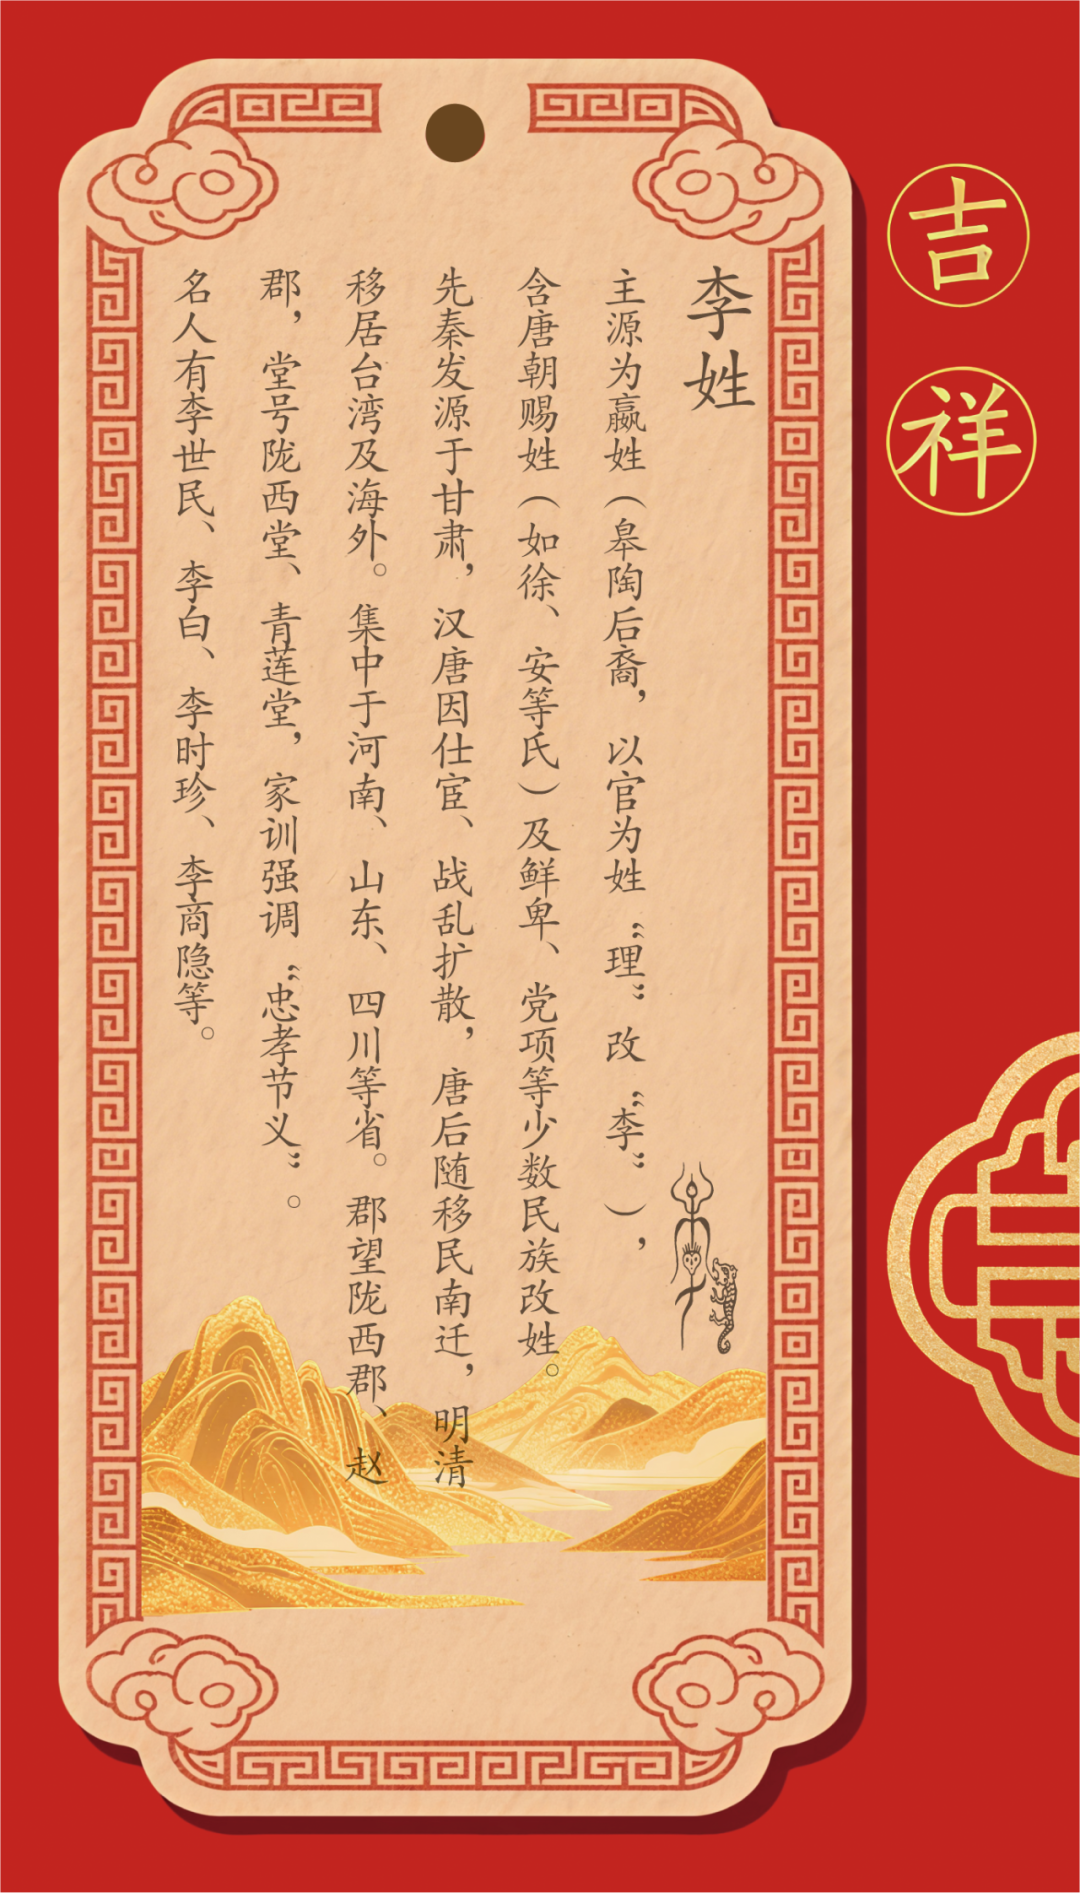 吉祥
李姓
主源为嬴姓（皋陶后裔，以官为姓“理”改“李”），
含唐朝赐姓（如徐、安等氏）及鲜卑、党项等少数民族改姓。
先秦发源于甘肃，汉唐因仕宦、战乱扩散，唐后随移民南迁，明清
移居台湾及海外。集中于河南、山东、四川等省。郡望陇西郡、赵
郡，堂号陇西堂、青莲堂，家训强调“忠孝节义”。
名人有李世民、李白、李时珍、李商隐等。